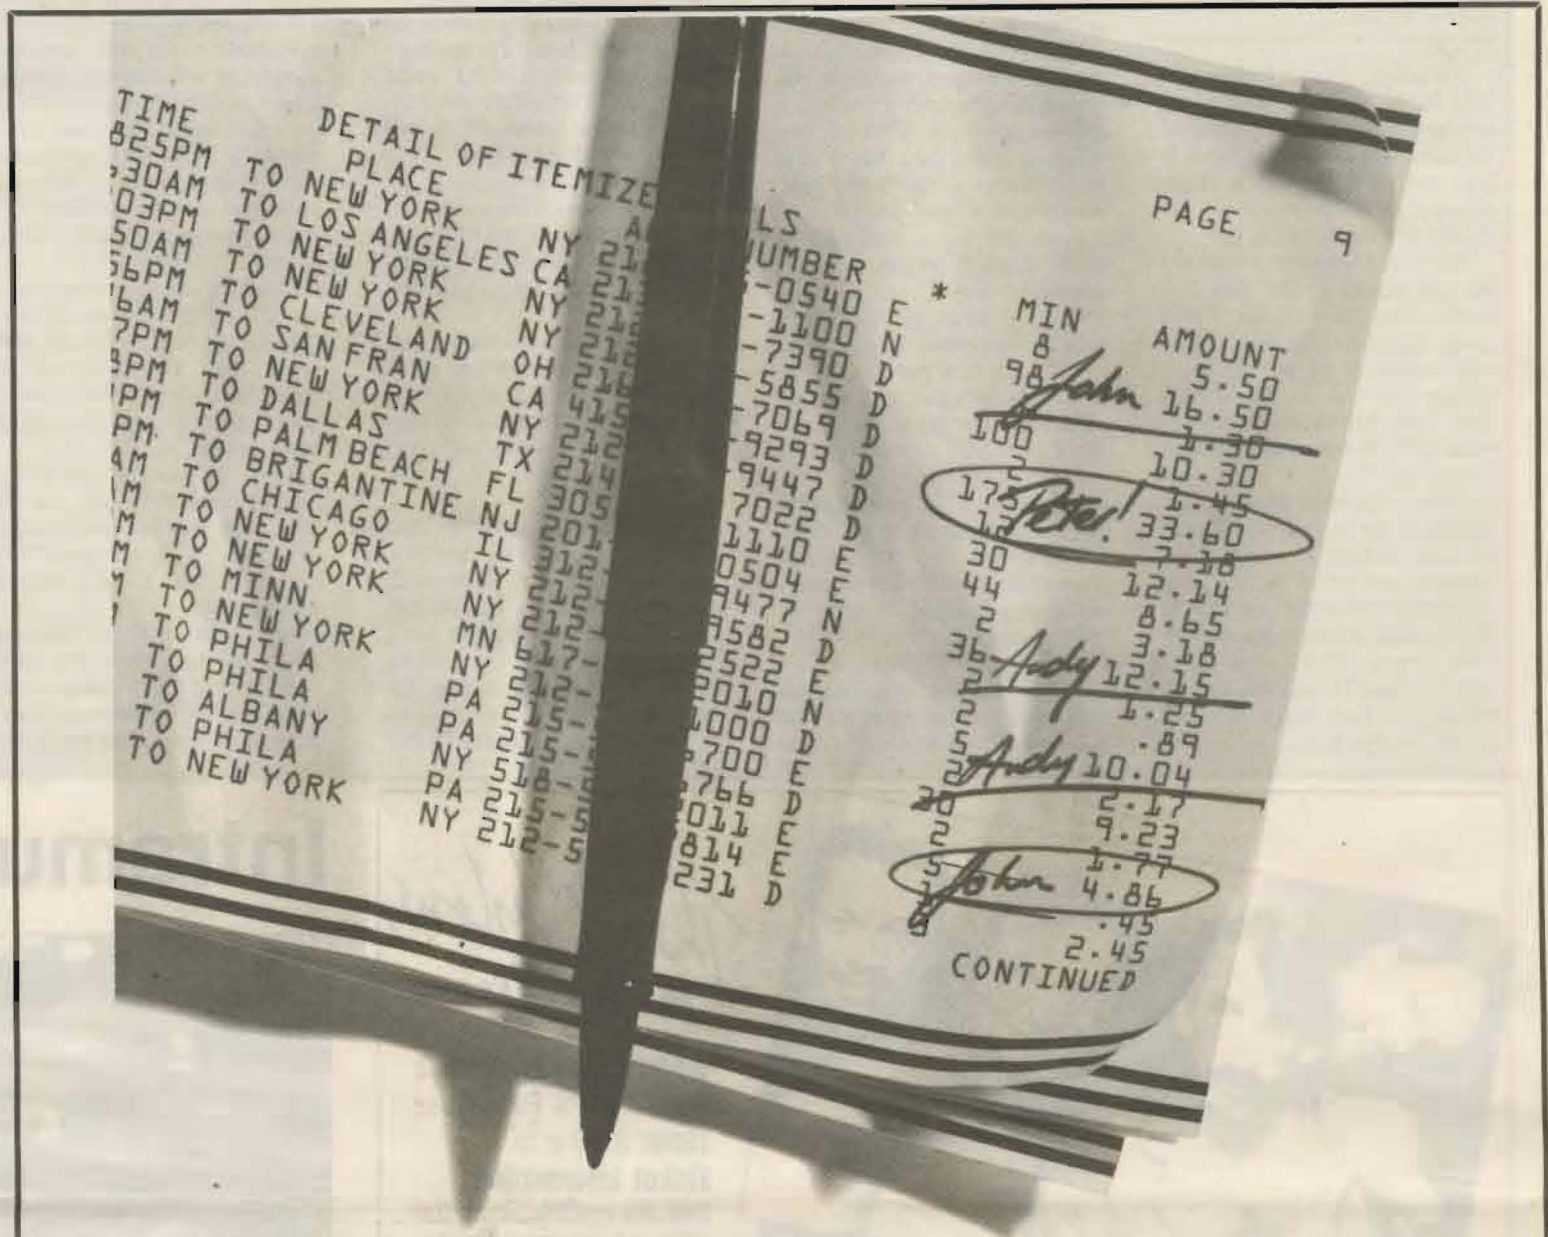 DETAIL OF ITEMIZE LS PAGE 9
TIME PLACE A NUMBER * MIN AMOUNT
825PM TO NEW YORK NY 21 -0540 E 8 5.50
30AM TO LOS ANGELES CA 21 -1100 N 98 John 16.50
03PM TO NEW YORK NY 21 -7390 D 1.30
50AM TO NEW YORK NY 212 -5855 D 100 10.30
56PM TO CLEVELAND OH 216 -7069 D 2 1.45
6AM TO SAN FRAN CA 415 -9293 D 175 Peter! 33.60
7PM TO NEW YORK NY 212 -9447 D 7.18
8PM TO DALLAS TX 214 7022 D 30 12.14
1PM TO PALM BEACH FL 305 1110 E 44 8.65
PM TO BRIGANTINE NJ 201 0504 E 2 3.18
AM TO CHICAGO IL 312 9477 N 36 Andy 12.15
AM TO NEW YORK NY 212 9582 D 2 1.25
M TO NEW YORK NY 212- 2522 E 2 .89
M TO MINN MN 617- 2010 N 5 Andy 10.04
M TO NEW YORK NY 212- 1000 D 2 2.17
TO PHILA PA 215- 700 E 20 9.23
TO PHILA PA 215- 766 D 2 1.77
TO ALBANY NY 518- 011 E 5 John 4.86
TO PHILA PA 215-5 814 E 1 .45
TO NEW YORK NY 212-5 231 D 8 2.45
CONTINUED